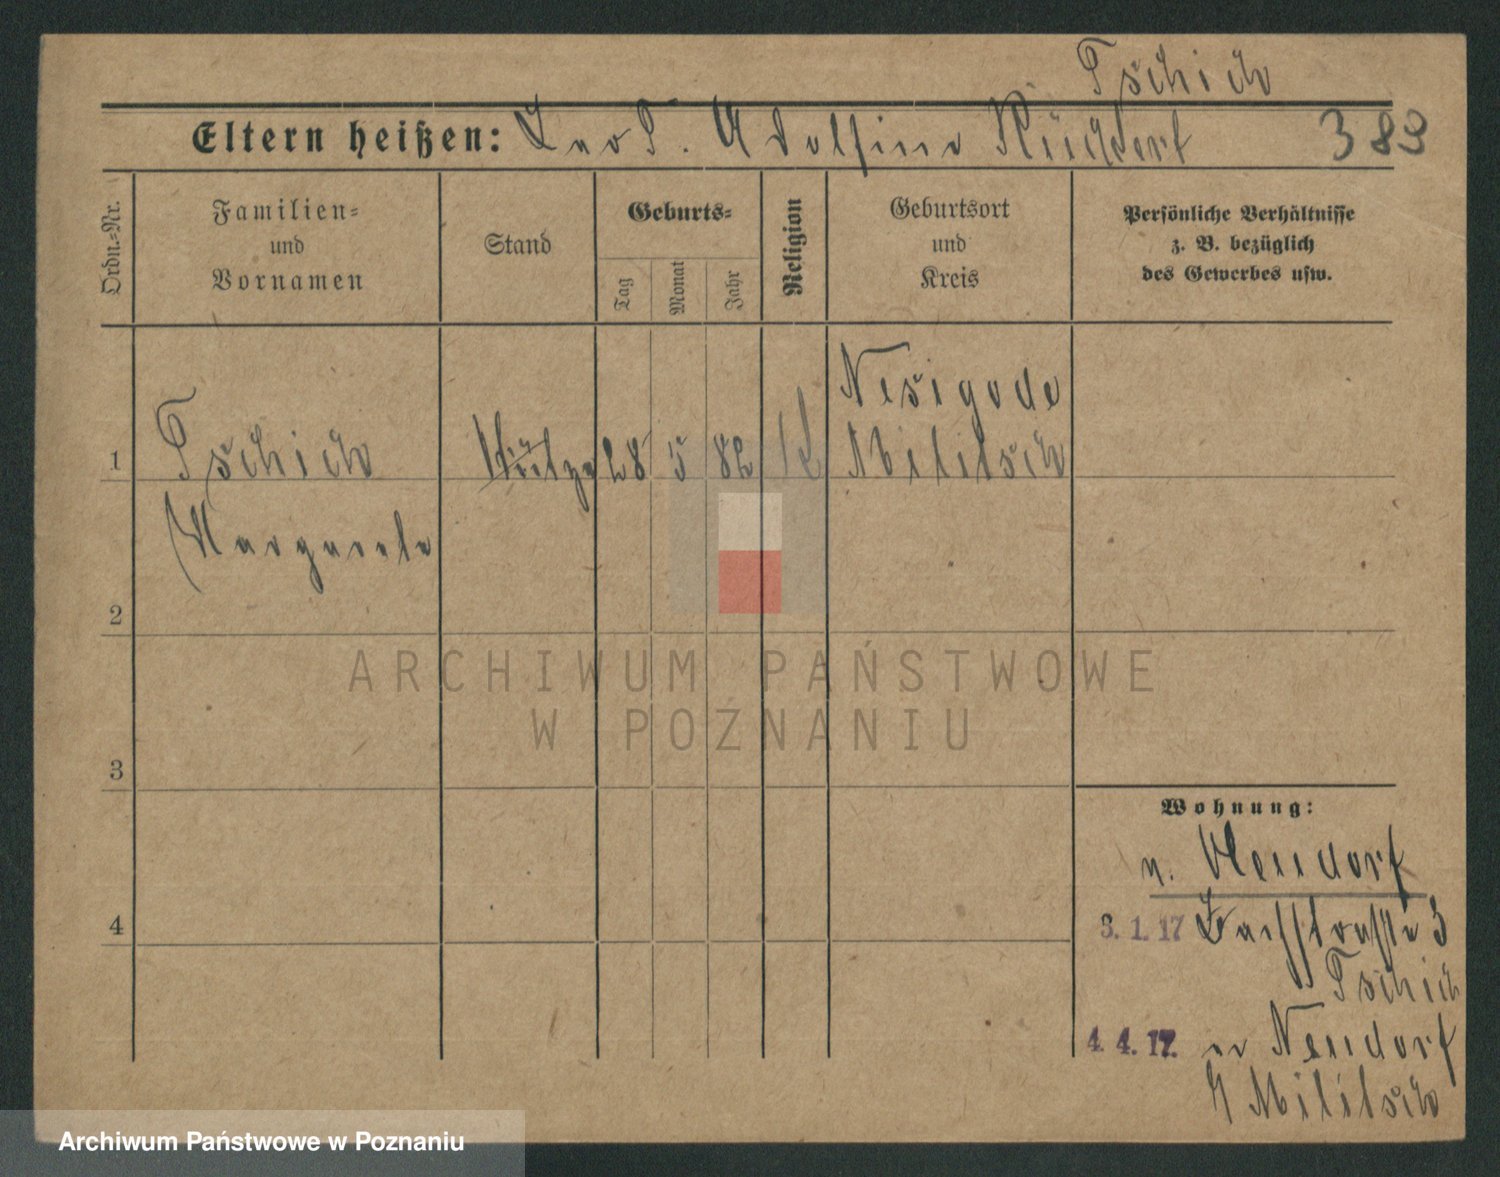 Tschich
Eltern heißen: Leo T. Adolfine Rückert 383
Ordn.-Nr.
Familien-
und
Vornamen
Stand
Geburts-
Tag
Monat
Jahr
Religion
Geburtsort
und
Kreis
Persönliche Verhältnisse
z. B. bezüglich
des Gewerbes usw.
Nesigode
1 Tschich Stütze 28 5 82 Militsch
Margarete
2
ARCHIWUM PAŃSTWOWE
W POZNANIU
3
Wohnung:
n. Neudorf
4
3. 1. 17 Bachstraße 3
Tschich
4. 4. 17. Neudorf
Militsch
Archiwum Państwowe w Poznaniu